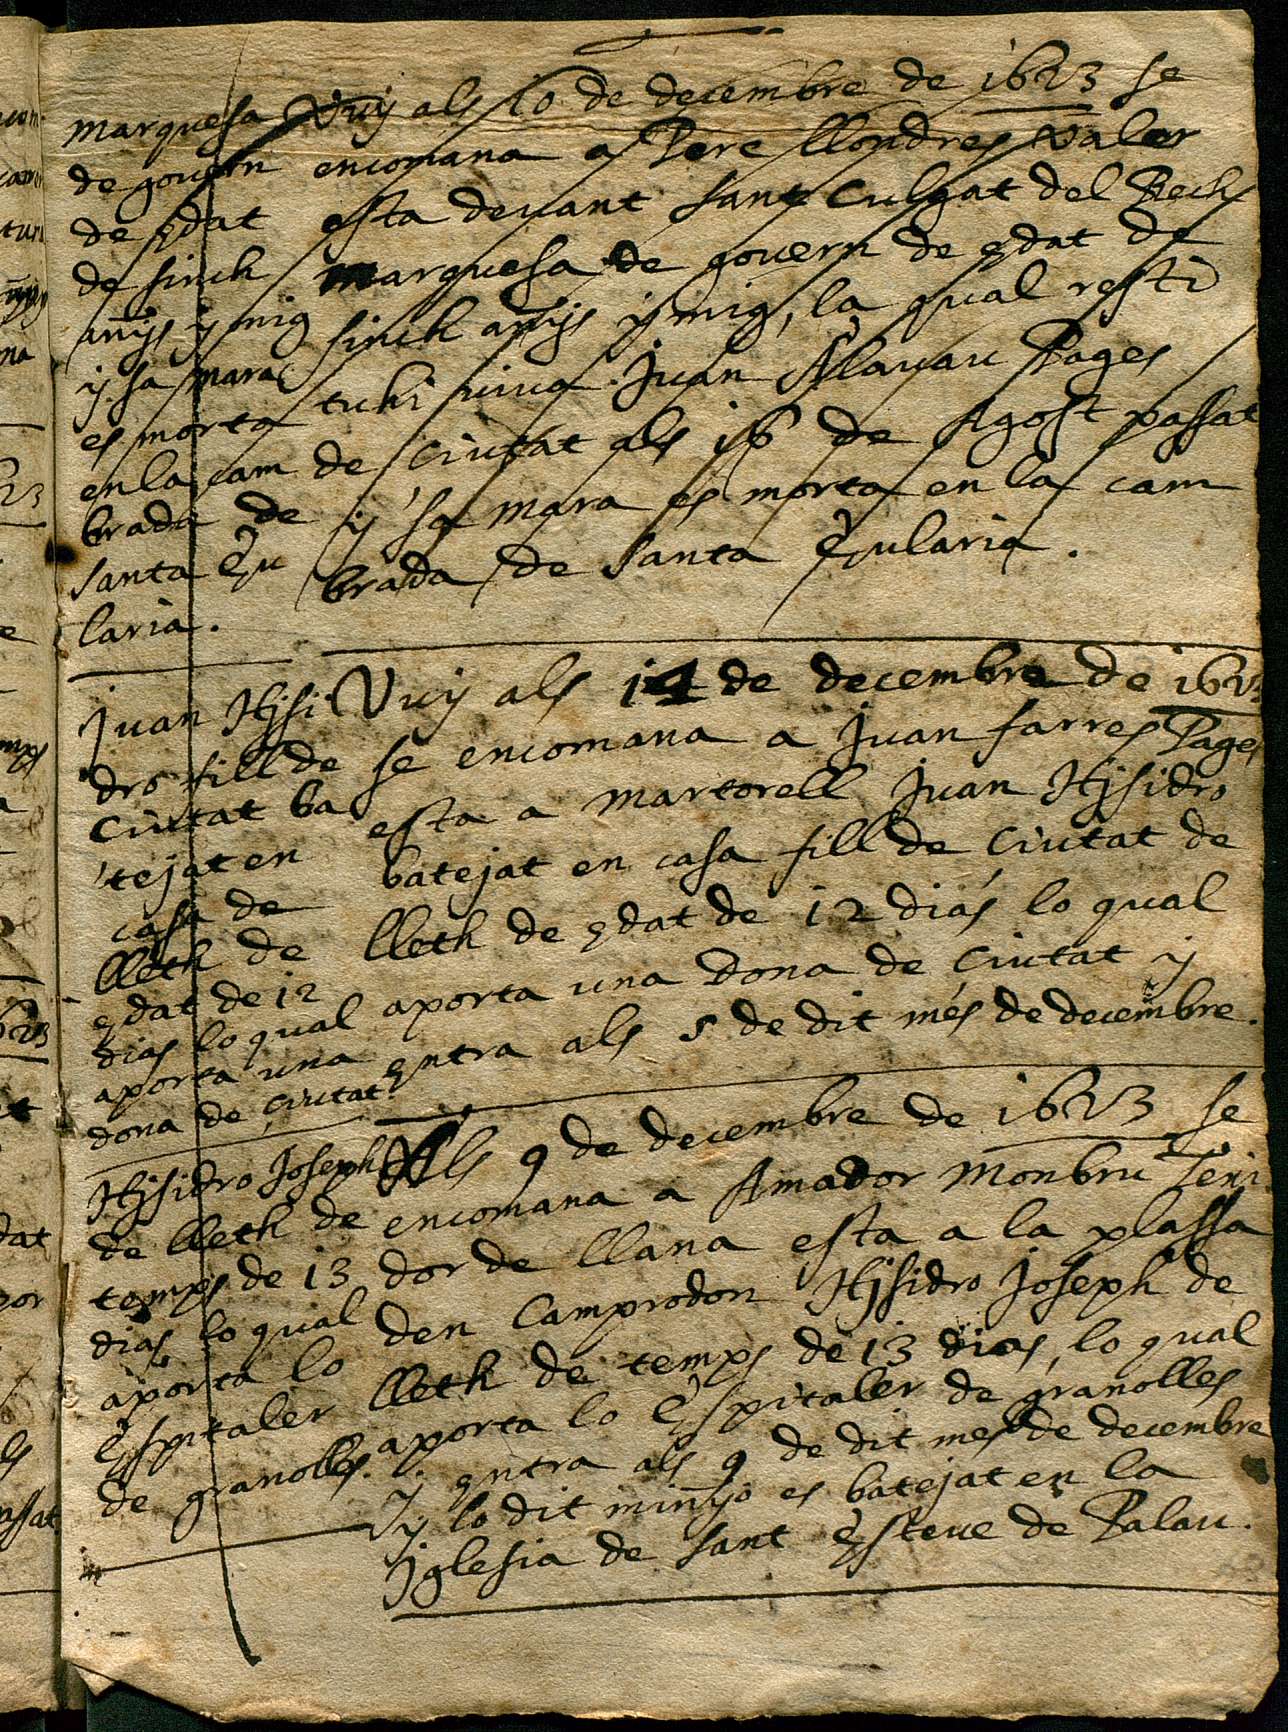 marquesa
de govern
de edat
de sinch
anys y mig
y sa mara
es morta
en la cam
brada de
santa Eu
laria.
Vuy als 10 de decembre de 1623 se
encomana a Pere llondres valer
esta devant sant Culgat del Rech
marquesa de govern de edat de
sinch anys y mig, la qual resti
tuhi viva Juan Alavau Pages
de Ciutat als 16 de Agost passat
y sa mara es morta en la cam
brada de santa Eularia.
Juan Hisi
dro fill de
Ciutat ba
tejat en
casa de
lleth de
edat de 12
dias lo qual
aporta una
dona de Ciutat
Vuy als 14 de decembre de 1623
se encomana a Juan farres Pages
esta a martorell Juan Hisidro
batejat en casa fill de Ciutat de
lleth de edat de 12 dias lo qual
aporta una Dona de Ciutat y
entra als 5 de dit mes de decembre.
Hisidro Joseph
de lleth de
temps de 13
dias lo qual
aporta lo
Espitaler
de granolles.
Als 9 de decembre de 1623 se
encomana a Amador Monbru Teni
dor de llana esta a la plassa
den Camprodon Hisidro Joseph de
lleth de temps de 13 dias, lo qual
aporta lo Espitaler de granolles
y entra als 9 de dit mes de decembre
y lo dit minyo es batejat en la
Iglesia de sant Esteve de Palau.